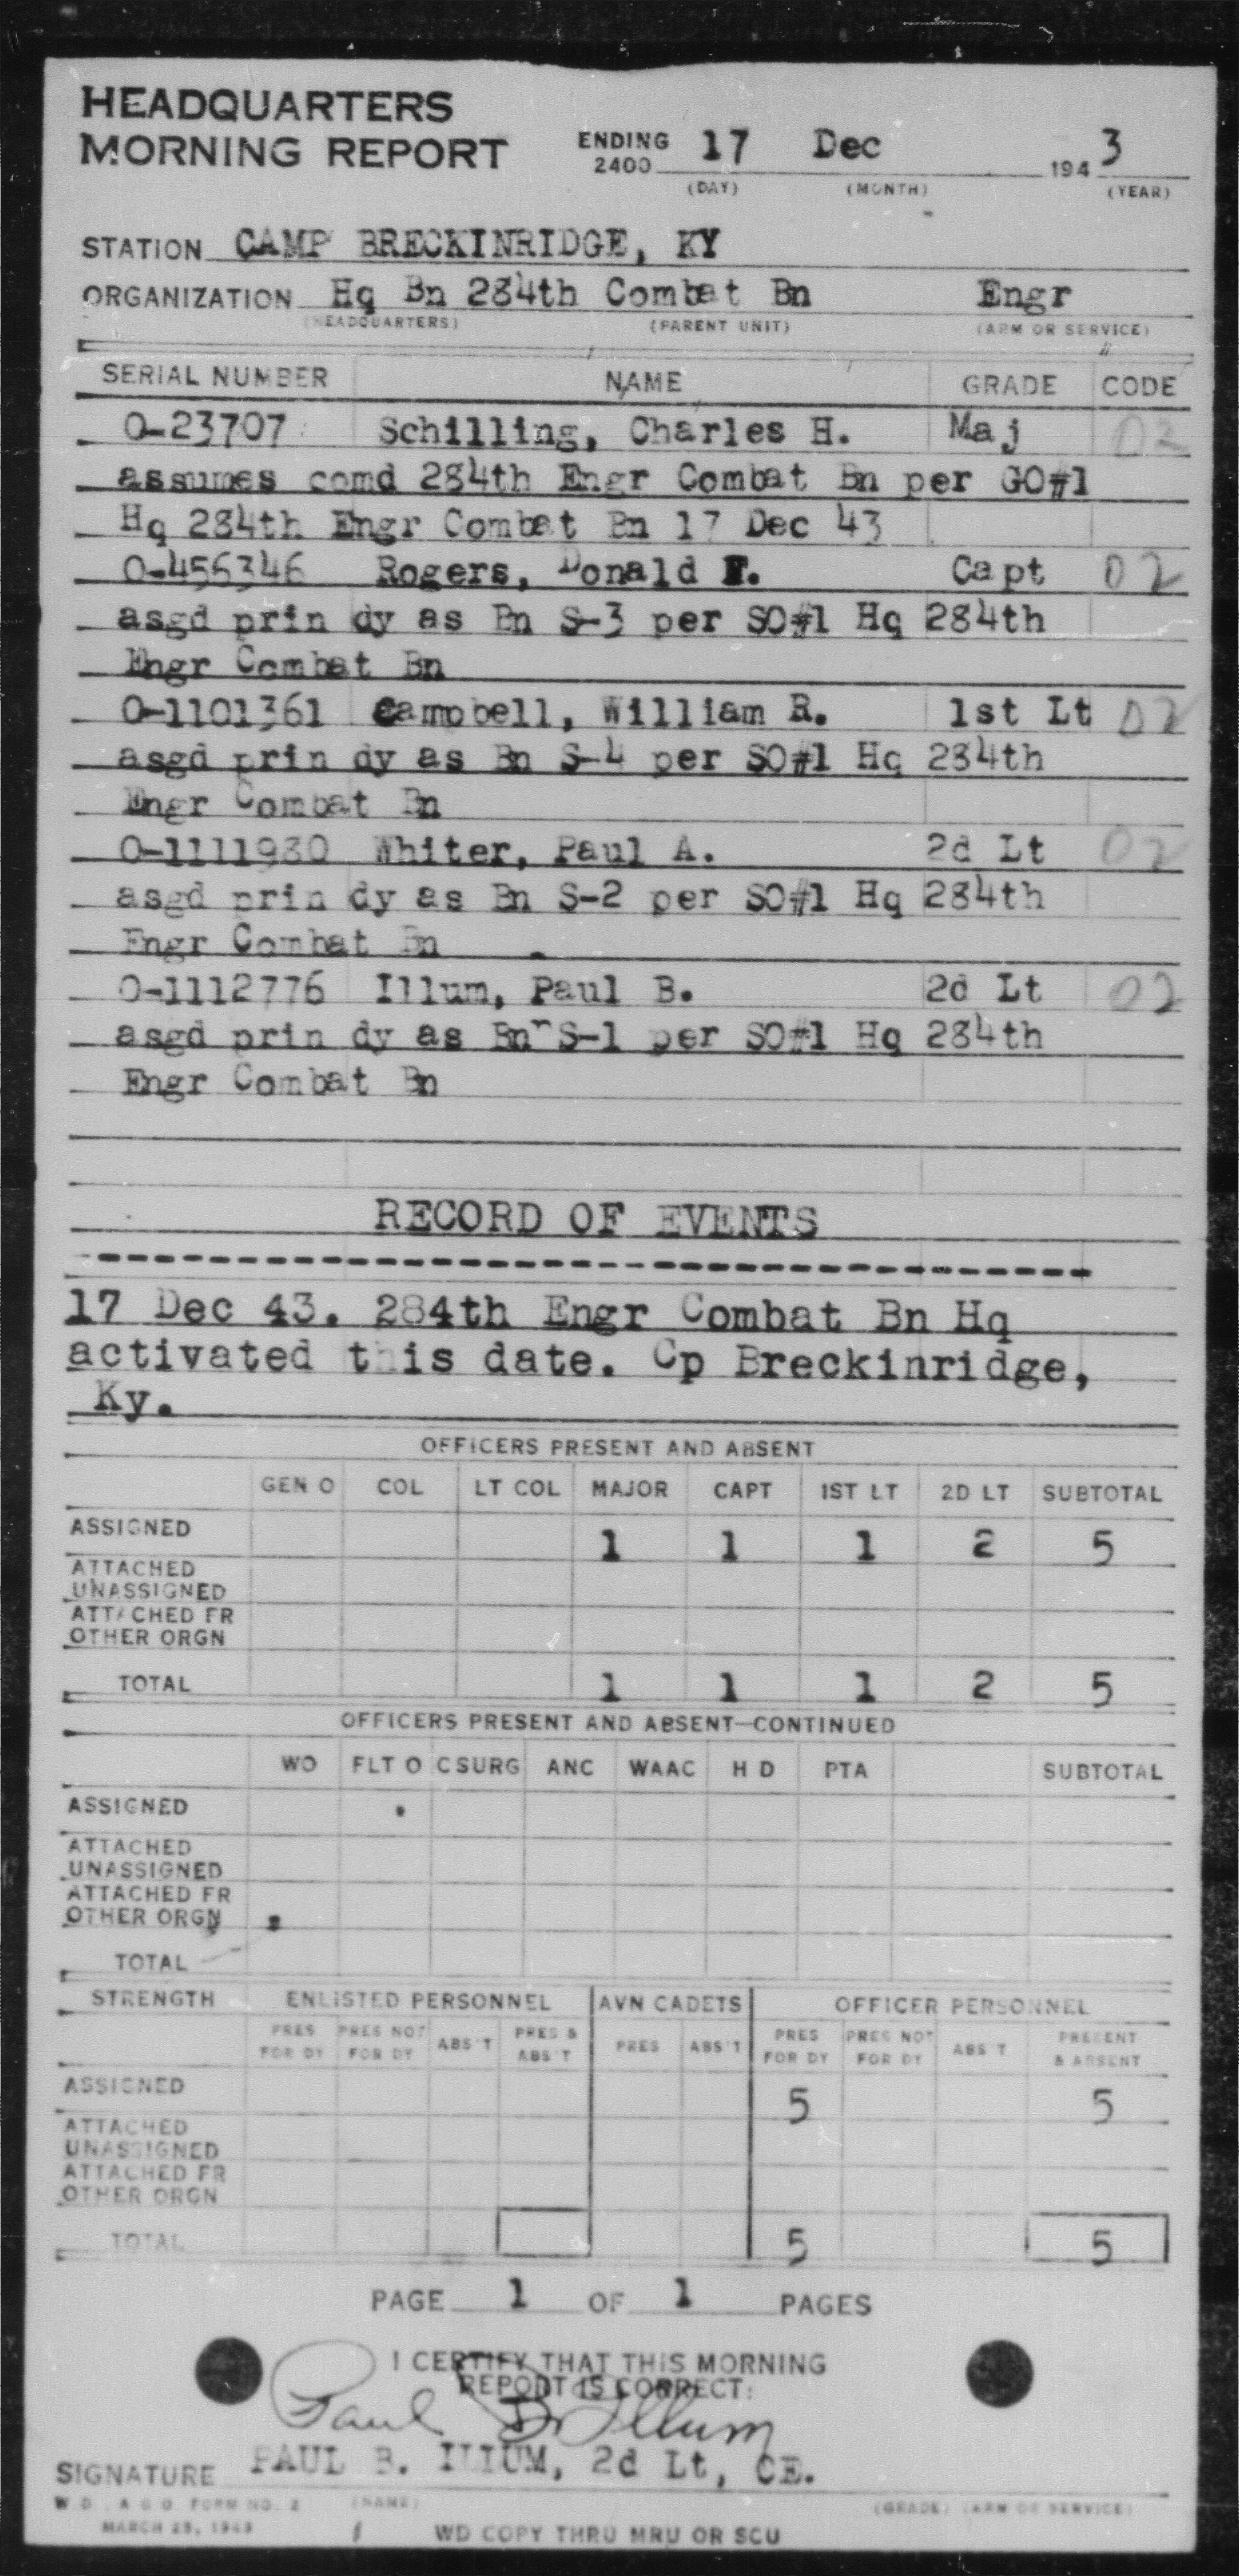 HEADQUARTERS
MORNING REPORT
ENDING 2400 17 Dec 194 3
(DAY) (MONTH) (YEAR)
STATION CAMP BRECKINRIDGE, KY
ORGANIZATION Hq Bn 284th Combat Bn Engr
(HEADQUARTERS) (PARENT UNIT) (ARM OR SERVICE)
SERIAL NUMBER NAME GRADE CODE
O-23707 Schilling, Charles H. Maj 02
assumes comd 284th Engr Combat Bn per GO#1
Hq 284th Engr Combat Bn 17 Dec 43
O-456346 Rogers, Donald F. Capt 02
asgd prin dy as Bn S-3 per SO#1 Hq 284th
Engr Combat Bn
O-1101361 Campbell, William R. 1st Lt 02
asgd prin dy as Bn S-4 per SO#1 Hq 284th
Engr Combat Bn
O-1111980 Whiter, Paul A. 2d Lt 02
asgd prin dy as Bn S-2 per SO#1 Hq 284th
Engr Combat Bn
O-1112776 Illum, Paul B. 2d Lt 02
asgd prin dy as Bn S-1 per SO#1 Hq 284th
Engr Combat Bn
RECORD OF EVENTS
---------------------------------------
17 Dec 43. 284th Engr Combat Bn Hq
activated this date. Cp Breckinridge,
Ky.
OFFICERS PRESENT AND ABSENT
GEN O COL LT COL MAJOR CAPT 1ST LT 2D LT SUBTOTAL
ASSIGNED 1 1 1 2 5
ATTACHED
UNASSIGNED
ATTACHED FR
OTHER ORGN
TOTAL 1 1 1 2 5
OFFICERS PRESENT AND ABSENT—CONTINUED
WO FLT O C SURG ANC WAAC H D PTA SUBTOTAL
ASSIGNED
ATTACHED
UNASSIGNED
ATTACHED FR
OTHER ORGN
TOTAL
STRENGTH ENLISTED PERSONNEL AVN CADETS OFFICER PERSONNEL
PRES FOR DY PRES NOT FOR DY ABS'T PRES & ABS'T PRES ABS'T PRES FOR DY PRES NOT FOR DY ABS T PRESENT & ABSENT
ASSIGNED 5 5
ATTACHED
UNASSIGNED
ATTACHED FR
OTHER ORGN
TOTAL 5 5
PAGE 1 OF 1 PAGES
I CERTIFY THAT THIS MORNING
REPORT IS CORRECT:
Paul B. Illum
SIGNATURE PAUL B. ILIUM, 2d Lt, CE.
(NAME) (GRADE) (ARM OR SERVICE)
W. D., A G O FORM NO. 2
MARCH 25, 1943
WD COPY THRU MRU OR SCU